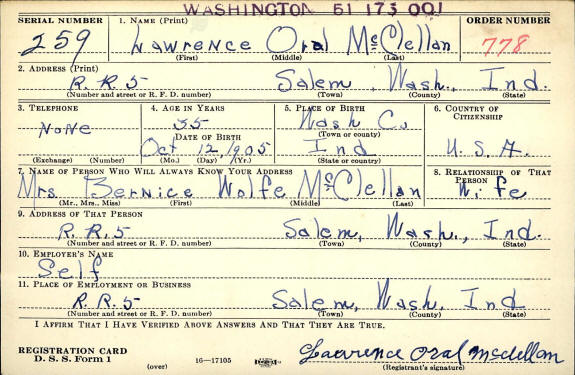 WASHINGTON 61 173 001
SERIAL NUMBER 1. NAME (Print) ORDER NUMBER
259 Lawrence Oral McClellan 778
(First) (Middle) (Last)
2. ADDRESS (Print)
R.R.5 Salem, Wash., Ind.
(Number and street or R. F. D. number) (Town) (County) (State)
3. TELEPHONE 4. AGE IN YEARS 5. PLACE OF BIRTH 6. COUNTRY OF CITIZENSHIP
None 35 Wash Co.
DATE OF BIRTH (Town or county)
Oct 12, 1905 Ind U.S.A.
(Exchange) (Number) (Mo.) (Day) (Yr.) (State or country)
7. NAME OF PERSON WHO WILL ALWAYS KNOW YOUR ADDRESS 8. RELATIONSHIP OF THAT PERSON
Mrs. Bernice Wolfe McClellan Wife
(Mr., Mrs., Miss) (First) (Middle) (Last)
9. ADDRESS OF THAT PERSON
R.R.5 Salem, Wash., Ind.
(Number and street or R. F. D. number) (Town) (County) (State)
10. EMPLOYER'S NAME
Self
11. PLACE OF EMPLOYMENT OR BUSINESS
R.R.5 Salem, Wash. Ind
(Number and street or R. F. D. number) (Town) (County) (State)
I AFFIRM THAT I HAVE VERIFIED ABOVE ANSWERS AND THAT THEY ARE TRUE.
REGISTRATION CARD
D. S. S. Form 1 16—17105 Lawrence Oral McClellan
(over) (Registrant's signature)